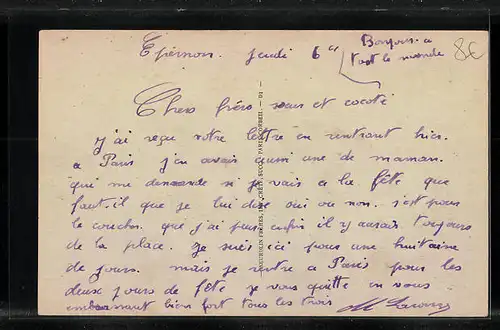 Epernon. jeudi 6h
Bonjour a
tout le monde
8€
Chers frère sœur et cocoté
j'ai reçu votre lettre en rentrant hier.
a Paris j'en avais aussi une de maman.
qui me demande si je vais a la fête que
faut-il que je lui dise oui ou non. s'est pour
le coucher. que j'ai pas enfin il y aurais toujours
de la place. je suis ici pour une huitaine
de jours. mais je rentre a Paris pour les
deux jours de fête je vous quitte en vous
embrassant bien fort tous les trois